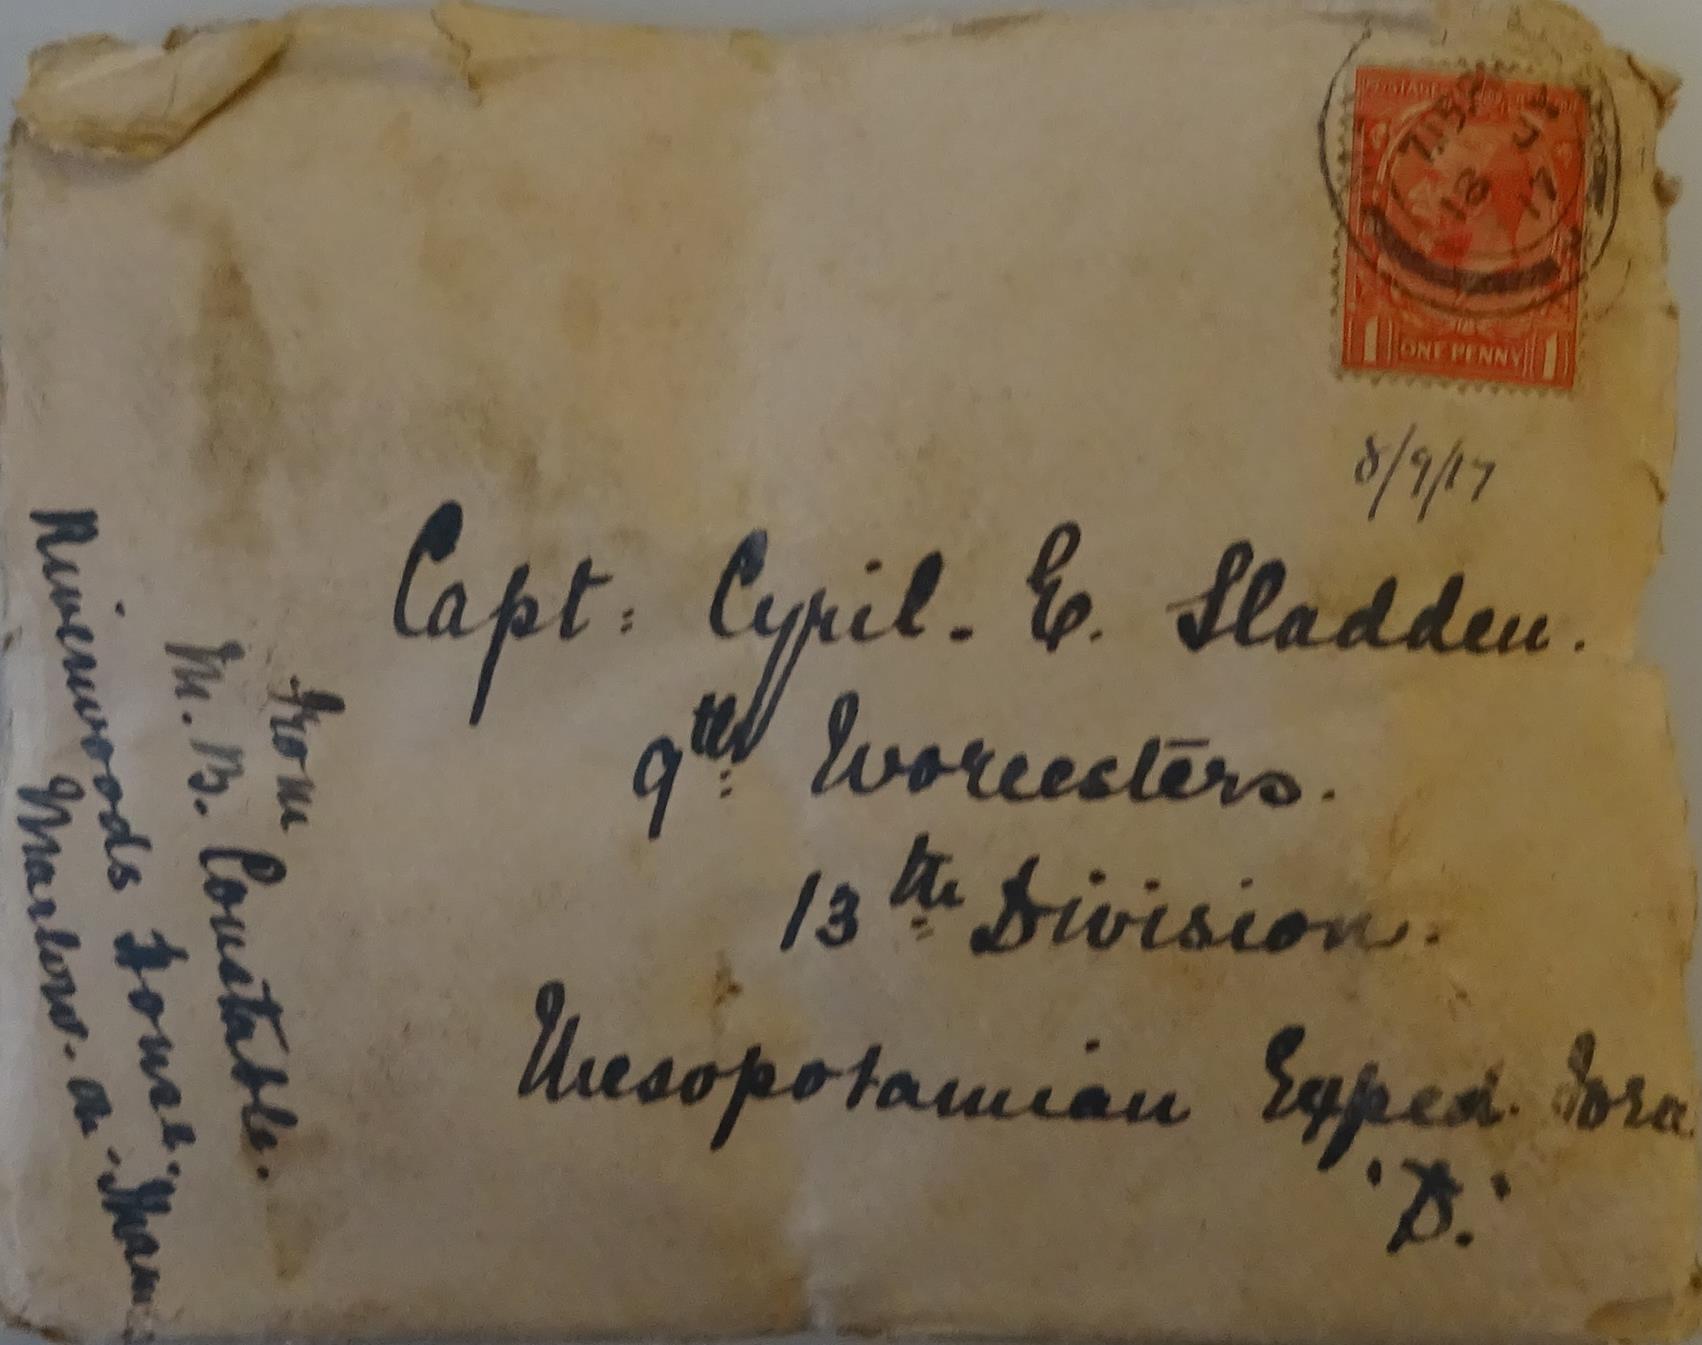 7.15 PM
18 JY
17
1 ONE PENNY 1
8/9/17
Capt: Cyril. E. Sladden.
9th: Worcesters.
13th Division.
Mesopotamian Exped. Force
'D.'
From
M. B. Constable.
Riverwoods House.
Marlow. on. Thames